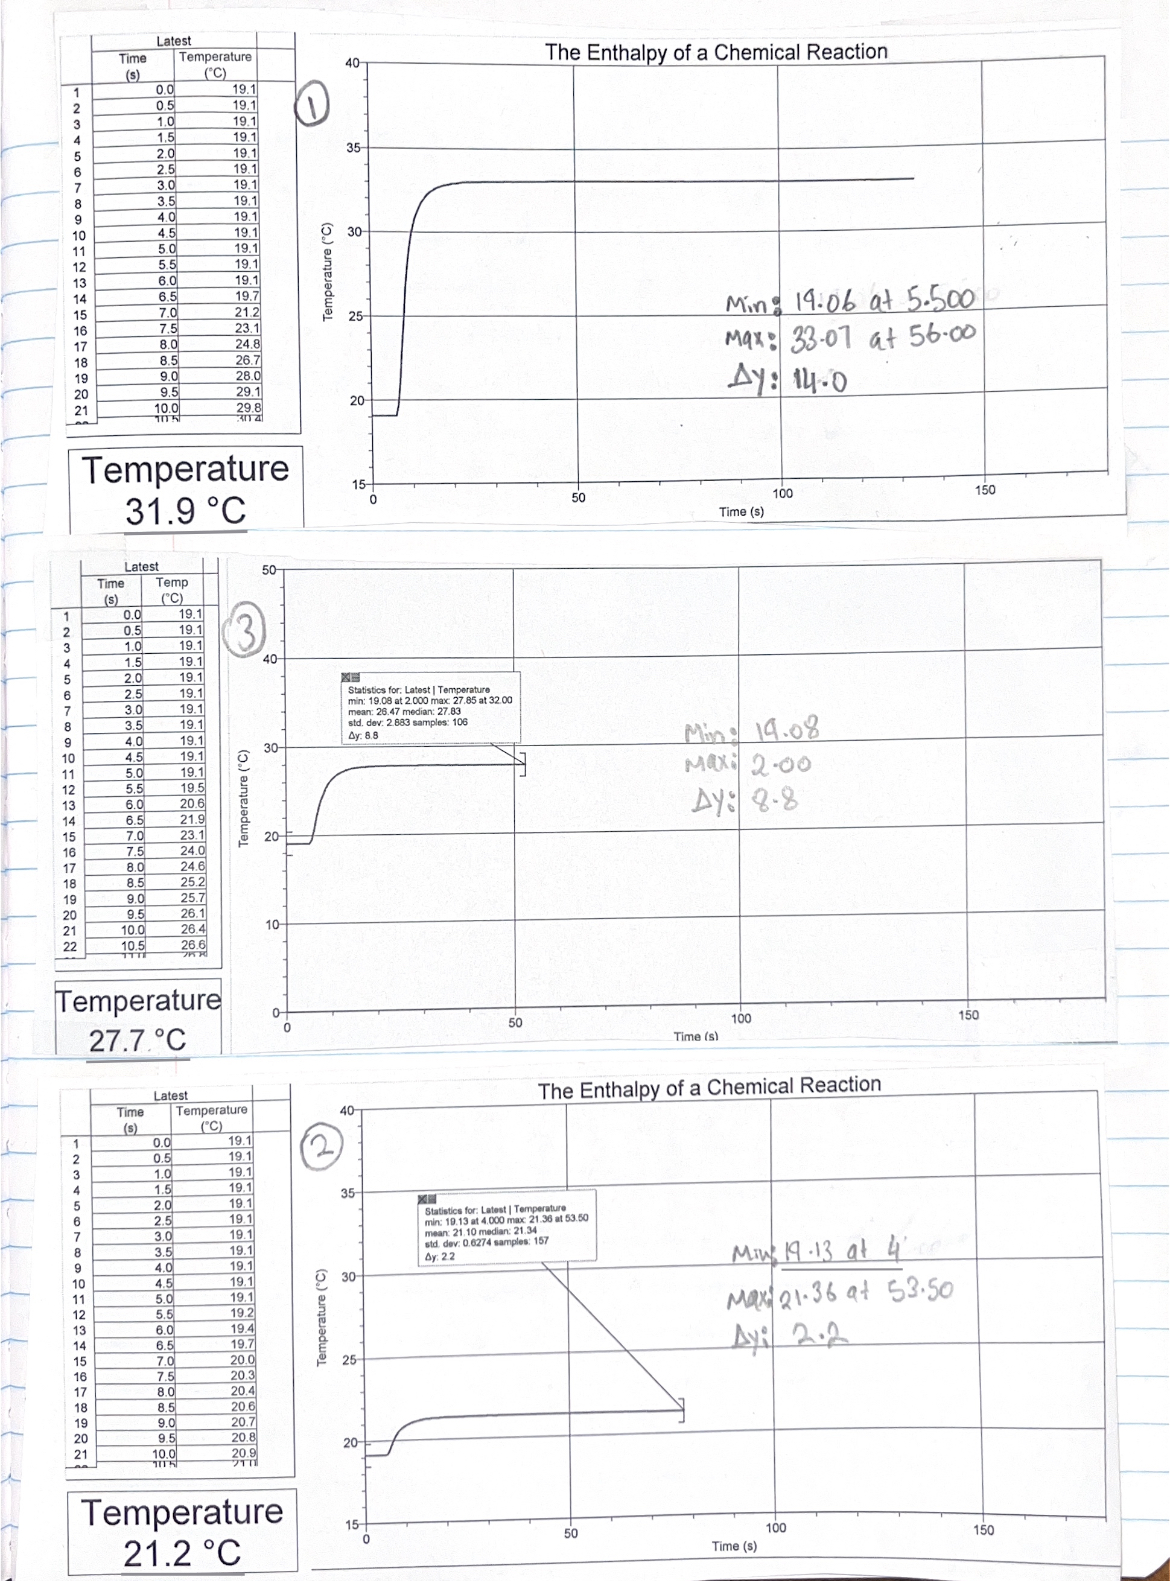 Latest
Time Temperature
(s) (°C)
1 0.0 19.1
2 0.5 19.1
3 1.0 19.1
4 1.5 19.1
5 2.0 19.1
6 2.5 19.1
7 3.0 19.1
8 3.5 19.1
9 4.0 19.1
10 4.5 19.1
11 5.0 19.1
12 5.5 19.1
13 6.0 19.1
14 6.5 19.7
15 7.0 21.2
16 7.5 23.1
17 8.0 24.8
18 8.5 26.7
19 9.0 28.0
20 9.5 29.1
21 10.0 29.8
Temperature
31.9 °C
1
The Enthalpy of a Chemical Reaction
40
35
30
25
20
15
Temperature (°C)
Min: 19.06 at 5.500
Max: 33.07 at 56.00
Δy: 14.0
0 50 100 150
Time (s)
Latest
Time Temp
(s) (°C)
1 0.0 19.1
2 0.5 19.1
3 1.0 19.1
4 1.5 19.1
5 2.0 19.1
6 2.5 19.1
7 3.0 19.1
8 3.5 19.1
9 4.0 19.1
10 4.5 19.1
11 5.0 19.1
12 5.5 19.5
13 6.0 20.6
14 6.5 21.9
15 7.0 23.1
16 7.5 24.0
17 8.0 24.6
18 8.5 25.2
19 9.0 25.7
20 9.5 26.1
21 10.0 26.4
22 10.5 26.6
Temperature
27.7 °C
3
50
40
30
20
10
0
Temperature (°C)
Statistics for: Latest | Temperature
min: 19.08 at 2.000 max: 27.85 at 32.00
mean: 26.47 median: 27.83
std. dev: 2.883 samples: 106
Δy: 8.8
Min: 19.08
Max: 2.00
Δy: 8.8
0 50 100 150
Time (s)
Latest
Time Temperature
(s) (°C)
1 0.0 19.1
2 0.5 19.1
3 1.0 19.1
4 1.5 19.1
5 2.0 19.1
6 2.5 19.1
7 3.0 19.1
8 3.5 19.1
9 4.0 19.1
10 4.5 19.1
11 5.0 19.1
12 5.5 19.2
13 6.0 19.4
14 6.5 19.7
15 7.0 20.0
16 7.5 20.3
17 8.0 20.4
18 8.5 20.6
19 9.0 20.7
20 9.5 20.8
21 10.0 20.9
Temperature
21.2 °C
2
The Enthalpy of a Chemical Reaction
40
35
30
25
20
15
Temperature (°C)
Statistics for: Latest | Temperature
min: 19.13 at 4.000 max: 21.36 at 53.50
mean: 21.10 median: 21.34
std. dev: 0.6274 samples: 157
Δy: 2.2
Min: 19.13 at 4
Max: 21.36 at 53.50
Δy: 2.2
0 50 100 150
Time (s)